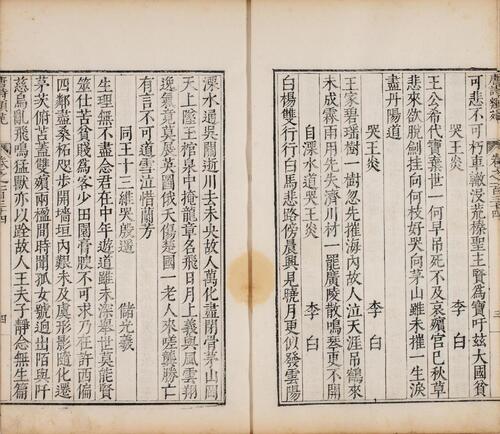 可悲不可朽車轍沒荒榛聖賢爲寶吁兹大國貧
哭王炎
李白
王公希代寶棄世一何早吊死不及哀殯宮已秋草
悲來欲脫劍挂向何枝好哭向茅山雖未摧一生淚
盡丹陽道
哭王炎
李白
王家碧瑤樹一樹忽先摧海内故人泣天涯吊鶴來
未成霖雨用先失濟川材一罷廣陵散鳴琴更不開
自溧水道哭王炎
李白
白楊雙行行白馬悲路傍晨興見曉月更似發雲陽
溧水通吳關逝川去未央故人萬化盡閉骨茅山岡
天上墜玉棺泉中掩龍章名飛日月上義與風雲翔
逸氣竟莫展英圖俄夭傷楚國一老人來嗟龔勝亡
有言不可道雪泣惜蘭芳
同王十三維哭殷遥
儲光羲
生理無不盡念君在中年遊道雖未深舉世莫能賢
筮仕苦貧賤爲客少田園膏腴不可求乃在許西偏
四鄰盡桑柘咫步開墻垣内艱未及虞形影隨化遷
茅茨俯苫蓋雙殯兩楹間時聞孤女號逈出陌與阡
慈烏亂飛鳴猛獸亦以跧故人王夫子靜念無生篇
四